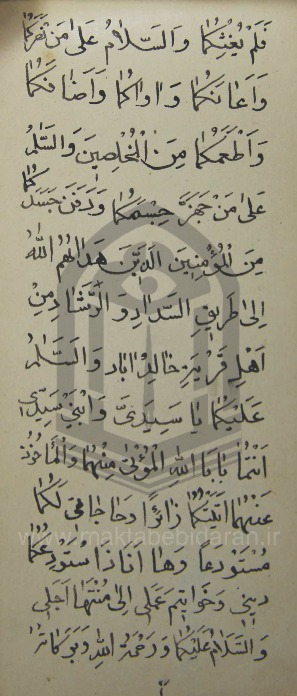 فَلَمْ يُغْثِكُمَا وَالسَّلَامُ عَلٰى مَنْ نَصَرَكُمَا
وَاَعَانَكُمَا وَاٰوَاكُمَا وَاَضَافَكُمَا
وَاَطْعَمَكُمَا مِنَ الْمُخْلِصِينَ وَالسَّلٰمُ
عَلٰى مَنْ جَهَّزَ جِسْمَكُمَا وَدَفَنَ جَسَدَكُمَا
مِنَ الْمُؤْمِنِينَ الَّذِينَ هَدَاهُمُ اللّٰهُ
اِلٰى طَرِيقِ السَّدَادِ وَالرَّشَادِ مِنْ
اَهْلِ قَرْيَةِ خَالِدْاٰبَاد وَالسَّلٰمُ
عَلَيْكُمَا يَا سَيِّدَىَّ وَابْنَىْ سَيِّدِى
اَنْتُمَا بَابَا اللّٰهِ الْمُؤْتٰى مِنْهُمَا وَالْمَأْخُوذُ
عَنْهُمَا اَتَيْتُكُمَا زَائِرًا وَحَاجَاتِى لَكُمَا
مُسْتَوْدِعاً وَهَا اَنَا ذَا اَسْتَوْدِعُكُمَا
دِينِى وَخَوَاتِيمَ عَمَلِى اِلٰى مُنْتَهَا اَجَلِى
وَالسَّلَامُ عَلَيْكُمَا وَرَحْمَةُ اللّٰهِ وَبَرَكَاتُهُ
www.maktabebidaran.ir